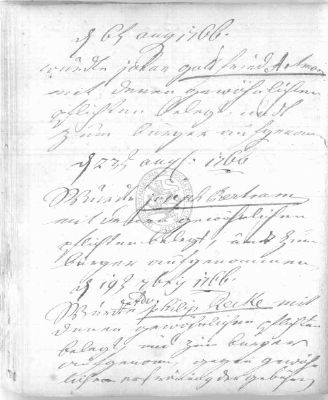 d 6t aug 1766.
wurde johan gottfried
mit denen gewöhnlichen
pflichten belegt, undt
zum burger aufgenom
d 22t augt. 1766
Wurde joseph Bertram
mit denen gewöhnlichen
pflichten belegt, und zum
burger aufgenommen.
d 19t 7bris 1766.
Wurde philip mit
denen gewöhnlichen pflichten
belegt und zum burger
aufgenom gegen gewöhn
licher der gebühren